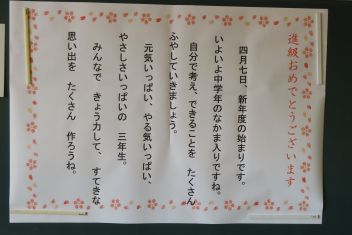 進級おめでとうございます
四月七日、新年度の始まりです。
いよいよ中学年のなかま入りですね。
自分で考え、できることを たくさん
ふやしていきましょう。
元気いっぱい、やる気いっぱい、
やさしさいっぱいの 三年生。
みんなで きょう力して、すてきな
思い出を たくさん 作ろうね。